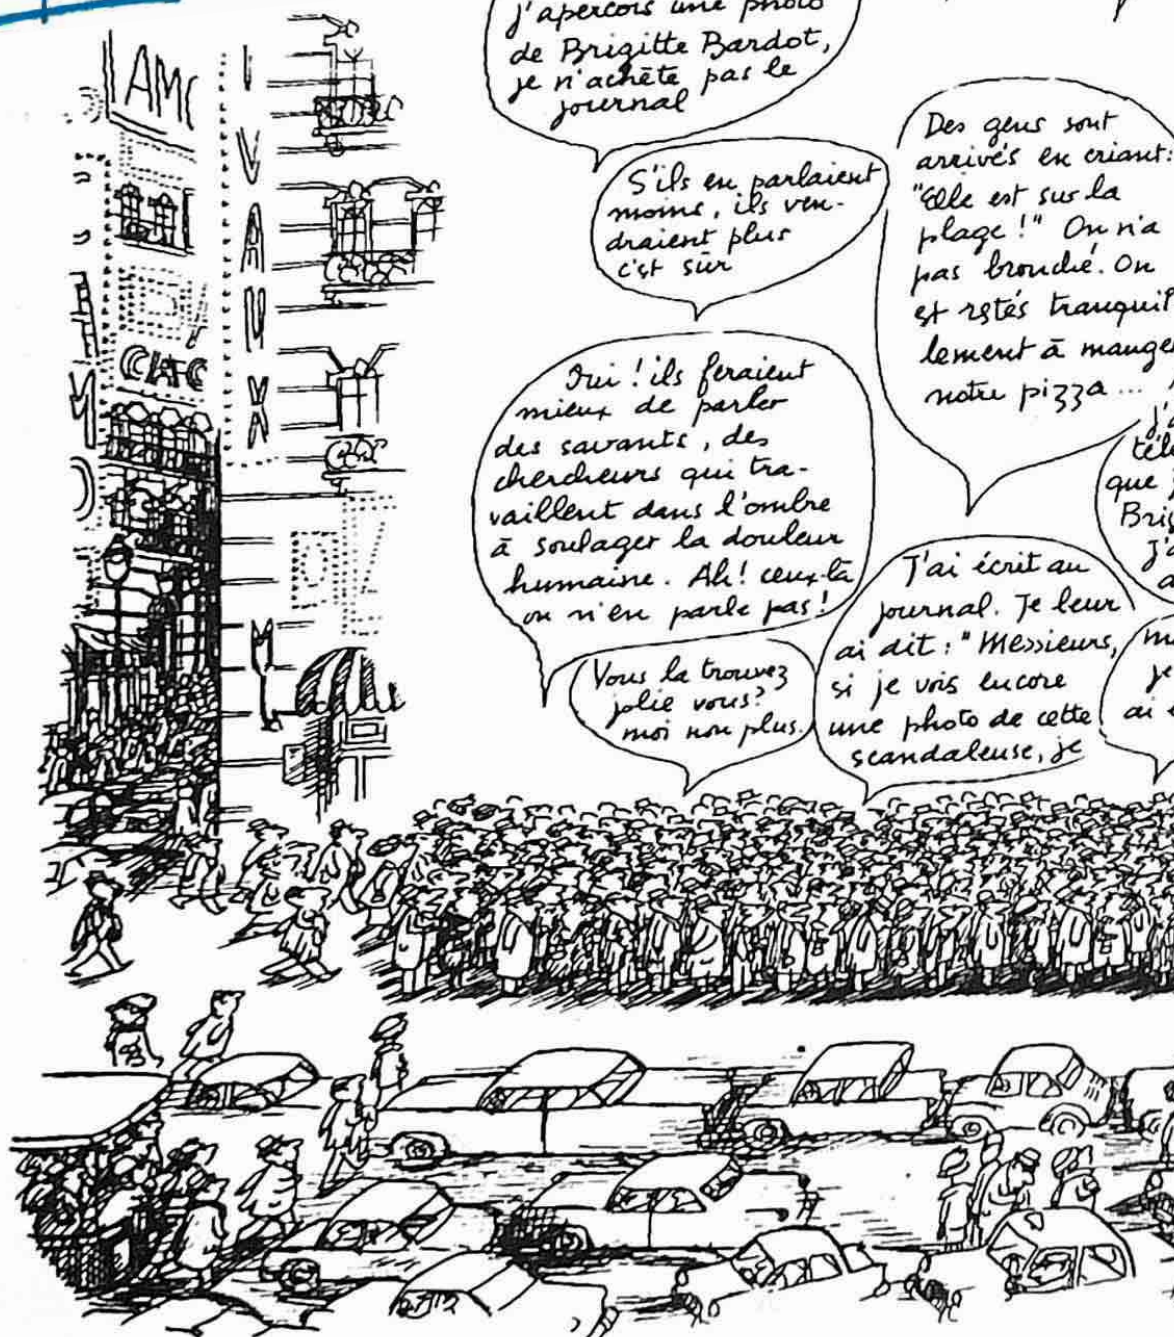 j'apercois une photo
de Brigitte Bardot,
je n'achète pas le
journal
S'ils en parlaient
moins, ils ven-
draient plus
c'est sûr
Oui ! ils feraient
mieux de parler
des savants, des
chercheurs qui tra-
vaillent dans l'ombre
à soulager la douleur
humaine. Ah ! ceux-là
on n'en parle pas !
Vous la trouvez
jolie vous ?
moi non plus.
Des gens sont
arrivés en criant :
"Elle est sur la
plage !" On n'a
pas bronché. On
est restés tranquil
lement à manger
notre pizza ...
J'ai écrit au
journal. Je leur
ai dit : "Messieurs,
si je vois encore
une photo de cette
scandaleuse, je
que
je
ai
LAM
IVAUX